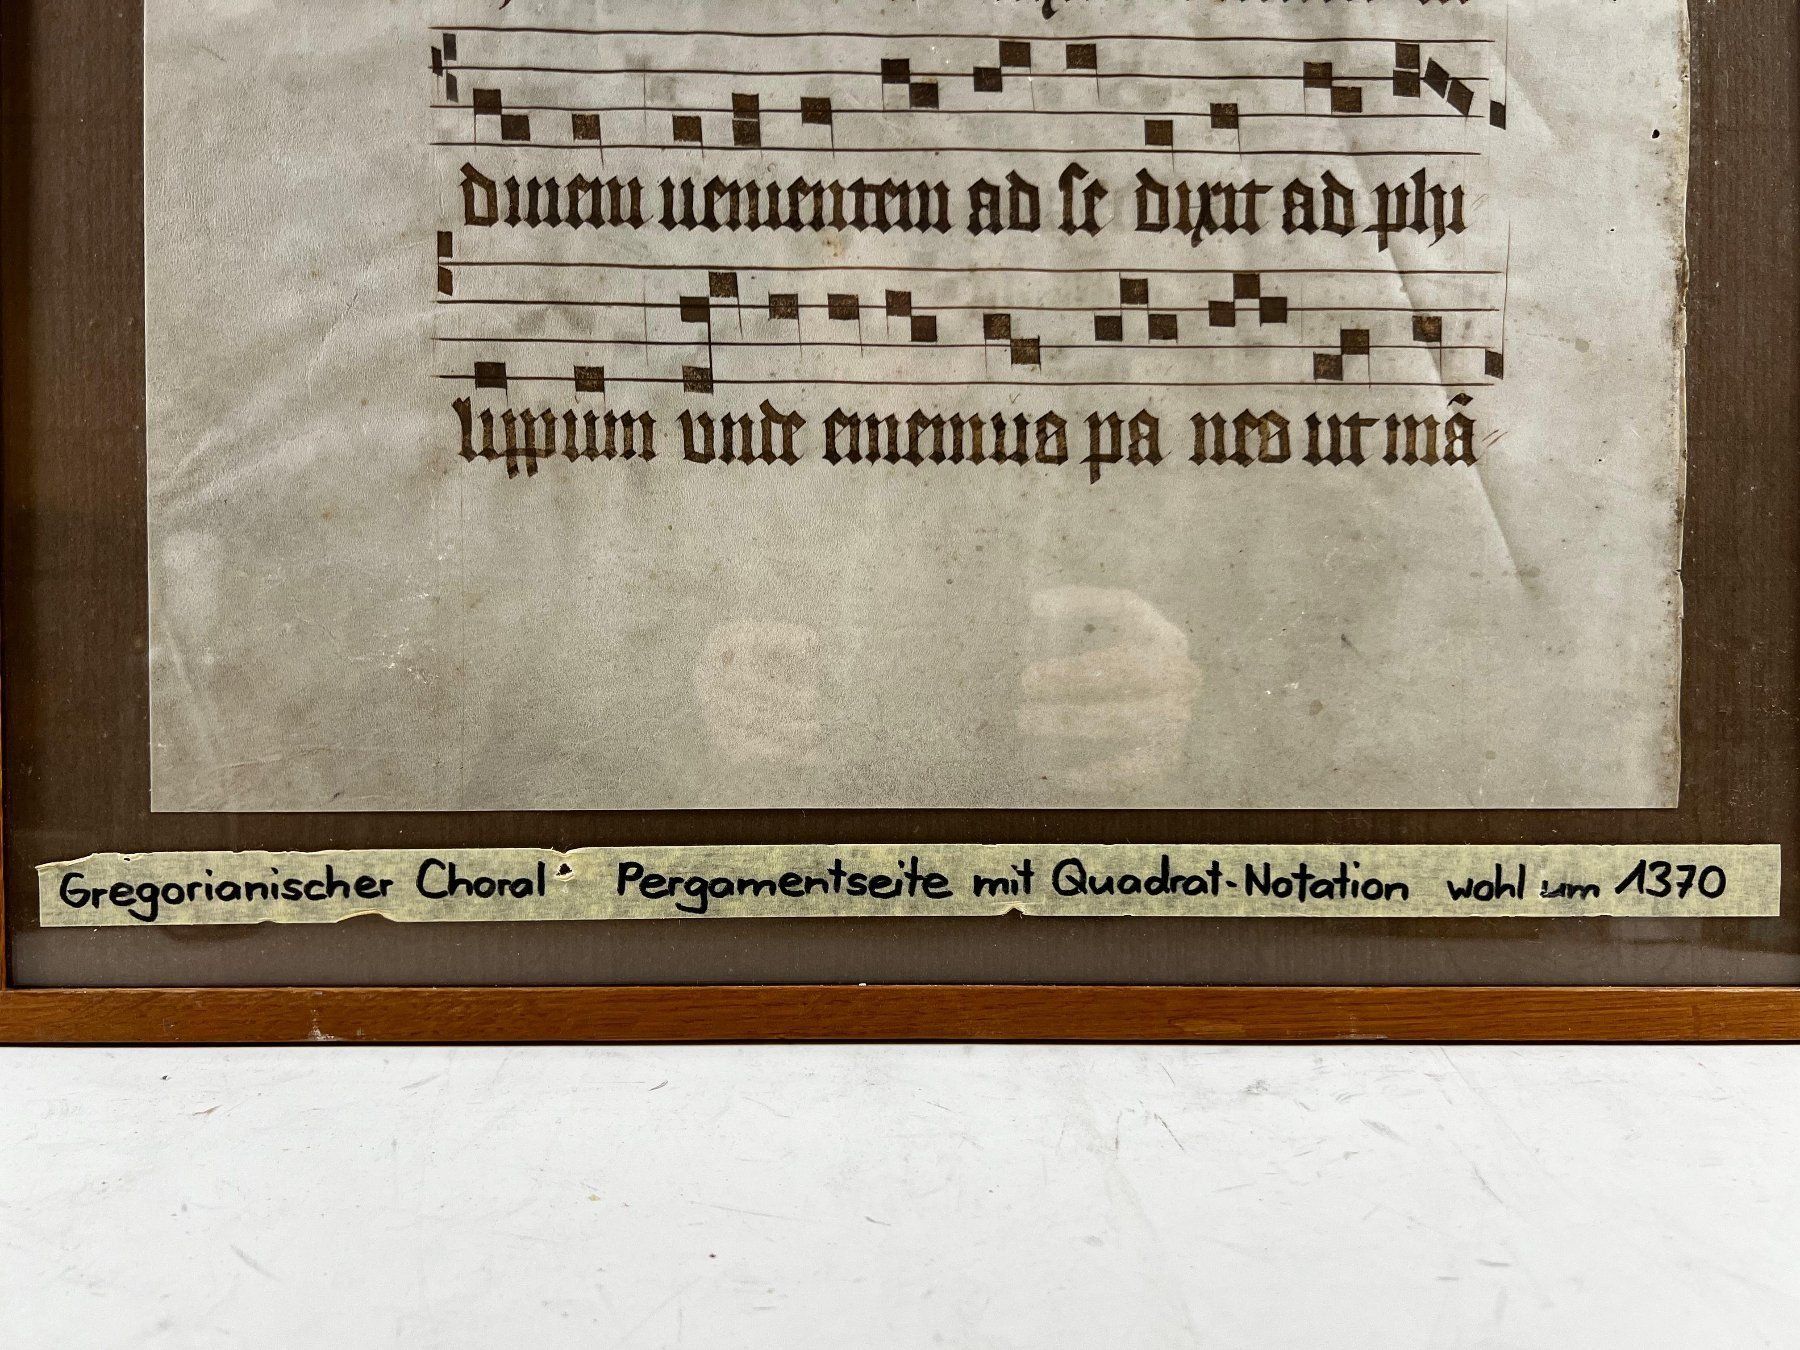 dinem uenientem ad se dixit ad phi
lippum vnde ememus pa nes ut mã
Gregorianischer Choral Pergamentseite mit Quadrat-Notation wohl um 1370